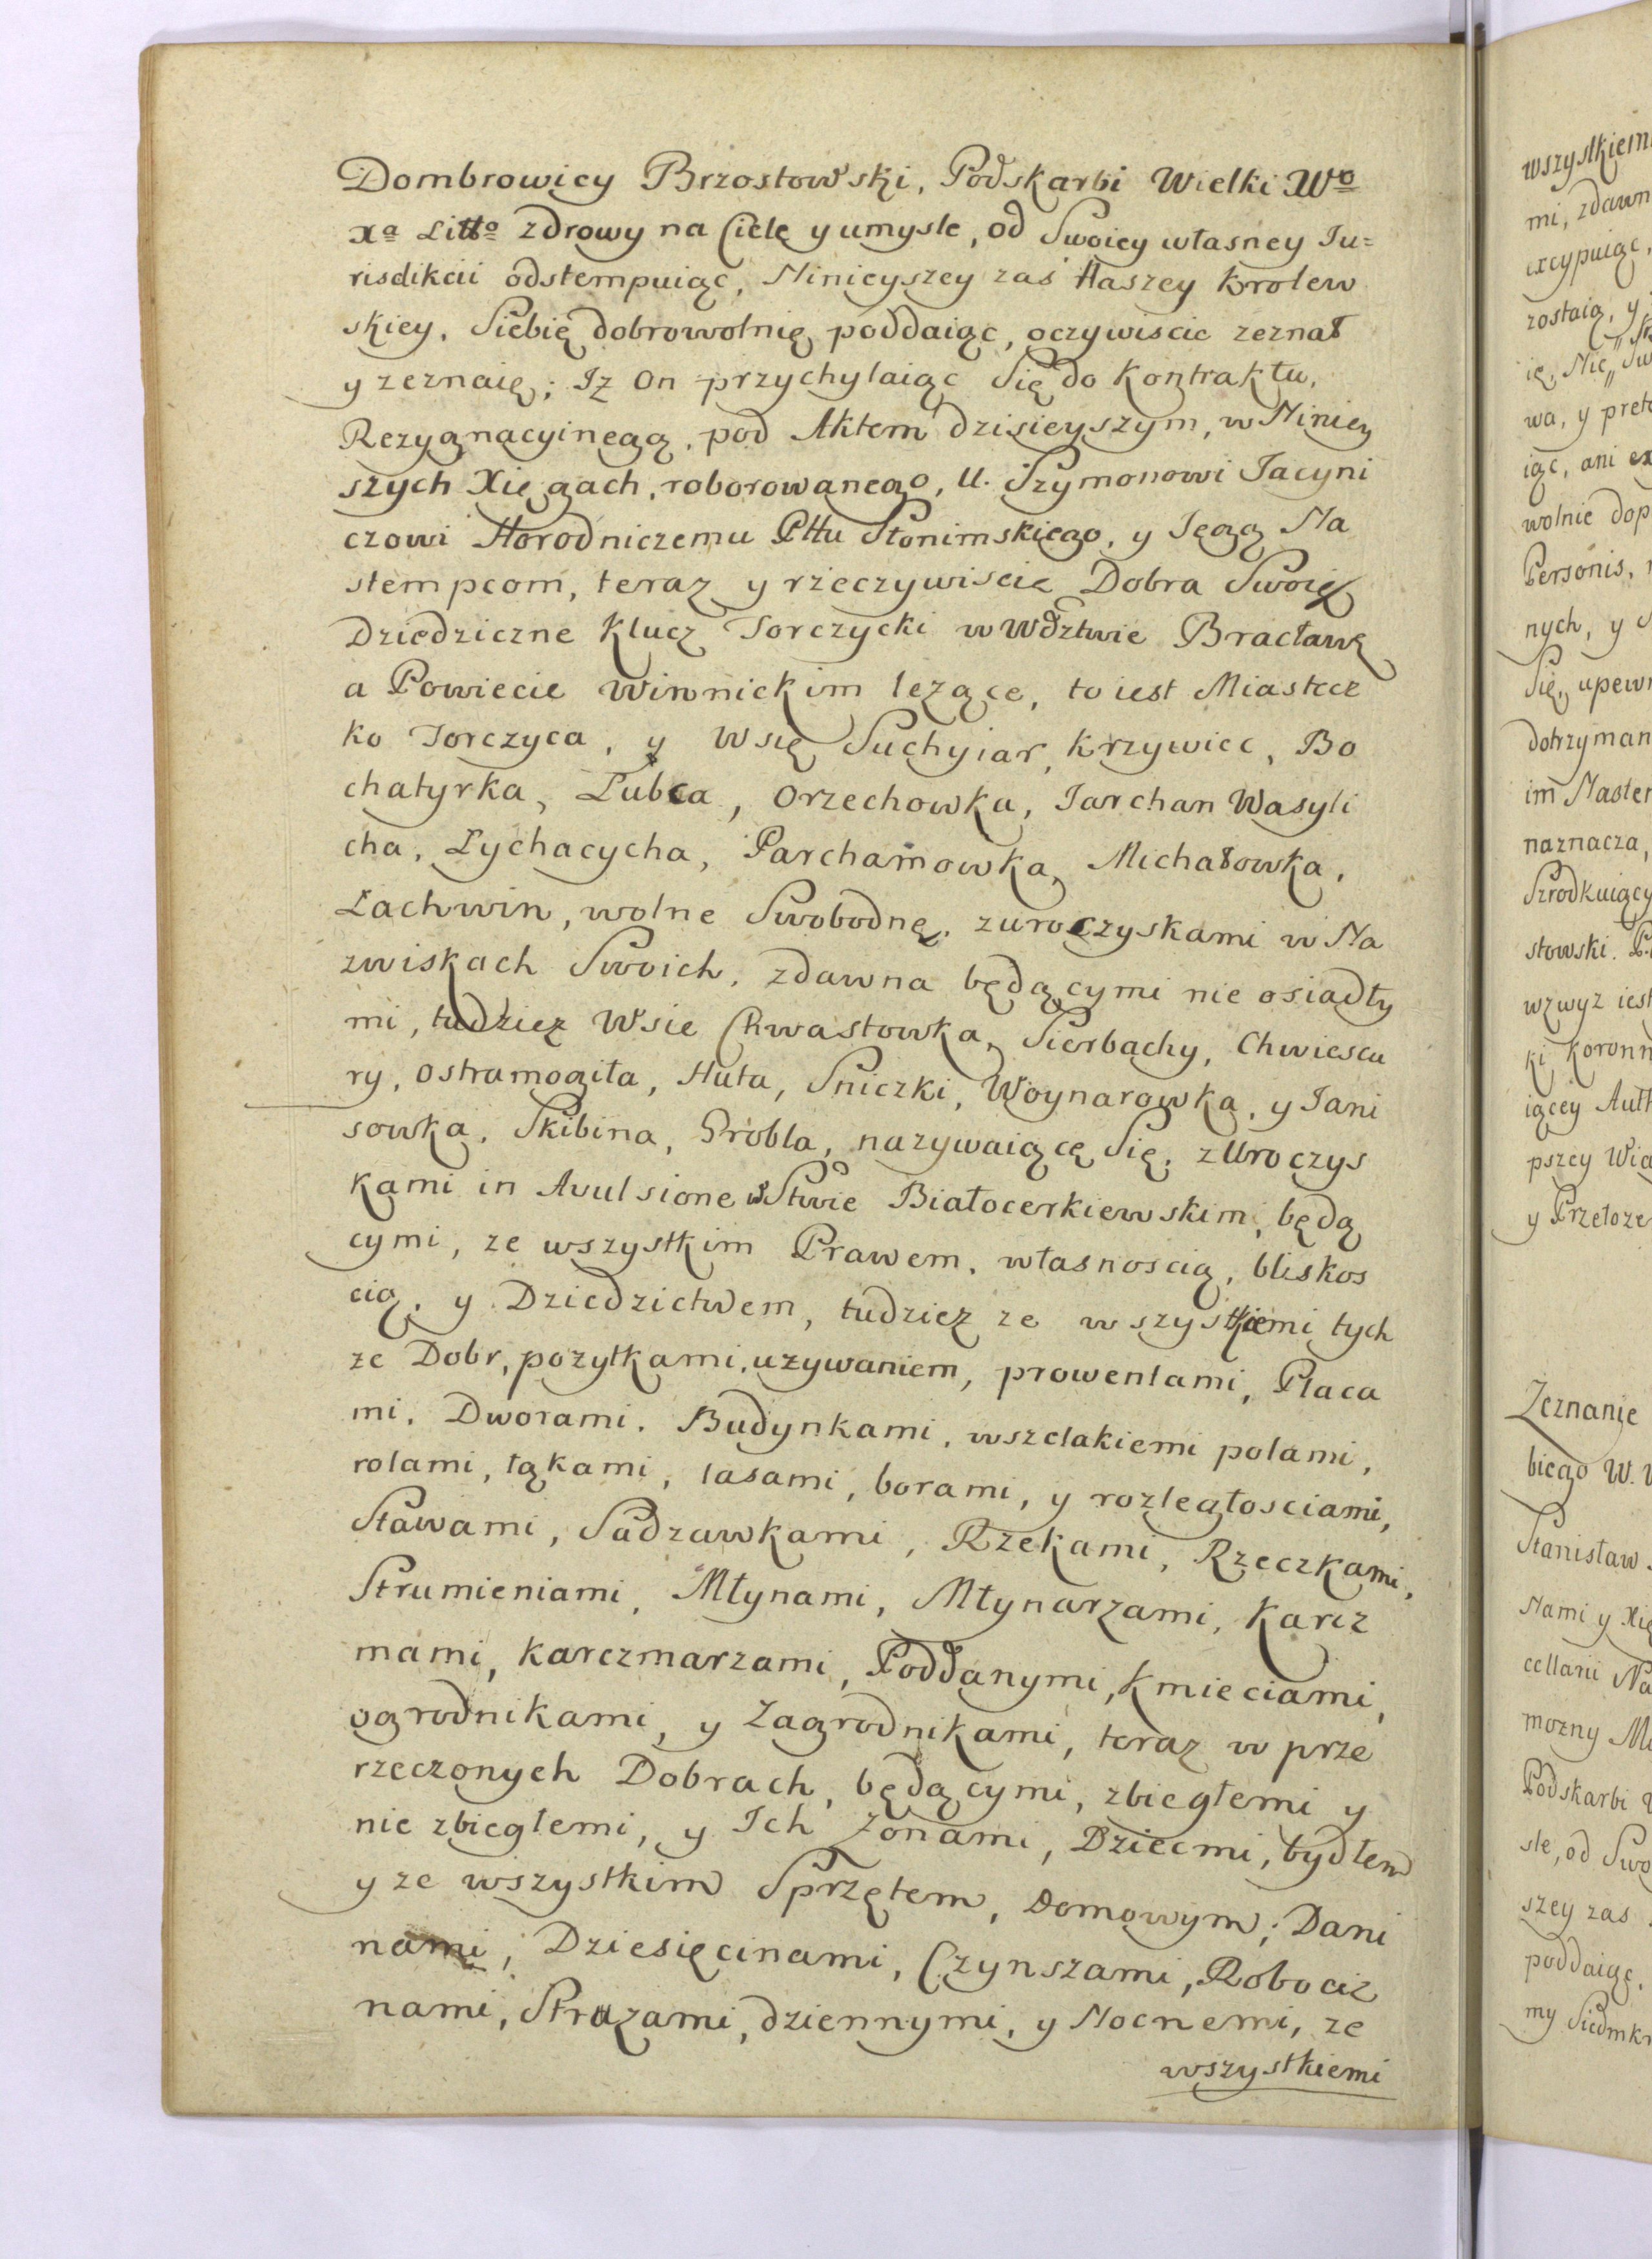 Dombrowicy Brzostowski, Podskarbi Wielki Wo
Xa Litto zdrowy na Ciele y umysle, od Swoiey własney Ju=
risdikcii odstempuiąc, Ninieyszey zaś Naszey Krolew
skiey, Siebię dobrowolnię poddaiąc, oczywiscie zeznał
y zeznaię; Iż On przychylaiąc Się do Kontraktu,
Rezygnacyinego, pod Aktem dzisieyszym, w Niniey
szych Xięgach, roborowanego, U. Szymonowi Jacyni
czowi Horodniczemu Pttu Słonimskiego, y Jego Na
stempcom, teraz y rzeczywiscie Dobra Swoie
Dziedziczne Klucz Torczycki w Wdztwie Bracławs
a Powiecie Winnickim leżące, to iest Miastecz
ko Torczyca, y Wsię Suchyiar, Krzywiec, Bo
chatyrka, Łubca, Orzechowka, Jarchan Wasyli
cha, Łychacycha, Parchamowka, Michałowka,
Łachwin, wolne Swobodnę, z uroczyskami w Na
zwiskach Swoich, zdawna będącymi nie osiadły
mi, tudzież Wsie Chwastowka, Pierbachy, Chwiescu
ry, Ostramogiła, Huta, Sniczki, Woynarowka, y Jani
sowka, Skibina, Grobla, nazywaiącę Się, z Uroczys
kami in Avulsione w Sttwie Białocerkiewskim, będą
cymi, ze wszystkim Prawem, własnoscią, bliskos
cią, y Dziedzictwem, tudzież ze wszystkiemi tych
ze Dobr, pożytkami, używaniem, prowentami, Placa
mi, Dworami, Budynkami, wszelakiemi polami,
rolami, łąkami, lasami, borami, y rozległosciami,
Stawami, Sadzawkami, Rzekami, Rzeczkami,
Strumieniami, Młynami, Młynarzami, Karcz
mami, Karczmarzami, Poddanymi, Kmieciami,
ogrodnikami, y Zagrodnikami, teraz w prze
rzeczonych Dobrach, będącymi, zbiegłemi y
nie zbiegłemi, y Ich Żonami, Dziecmi, bydłem
y ze wszystkim Sprzętem, Domowym; Dani
nami, Dziesięcinami, Czynszami, Robociz
nami, Strażami, dziennymi, y Nocnemi, ze
wszystkiemi
wszystkiem
mi, zdawn
excypuiąc,
zostaią, y
wa, y pret
iąc, ani ex
wolnie dop
Personis,
nych, y
Się, upewn
dotrzyman
im Nastem
naznacza,
Szrodkuiący
stowski.
wzwyż iest
ki Koronn
iącey Auth
pszey Wia
y Przełoże
Zeznanie
biego W.
Stanisław
Nami y Xię
cellarii Na
mozny
Podskarbi
sle, od Swo
szey zas
poddaiąc,
my Siedmk